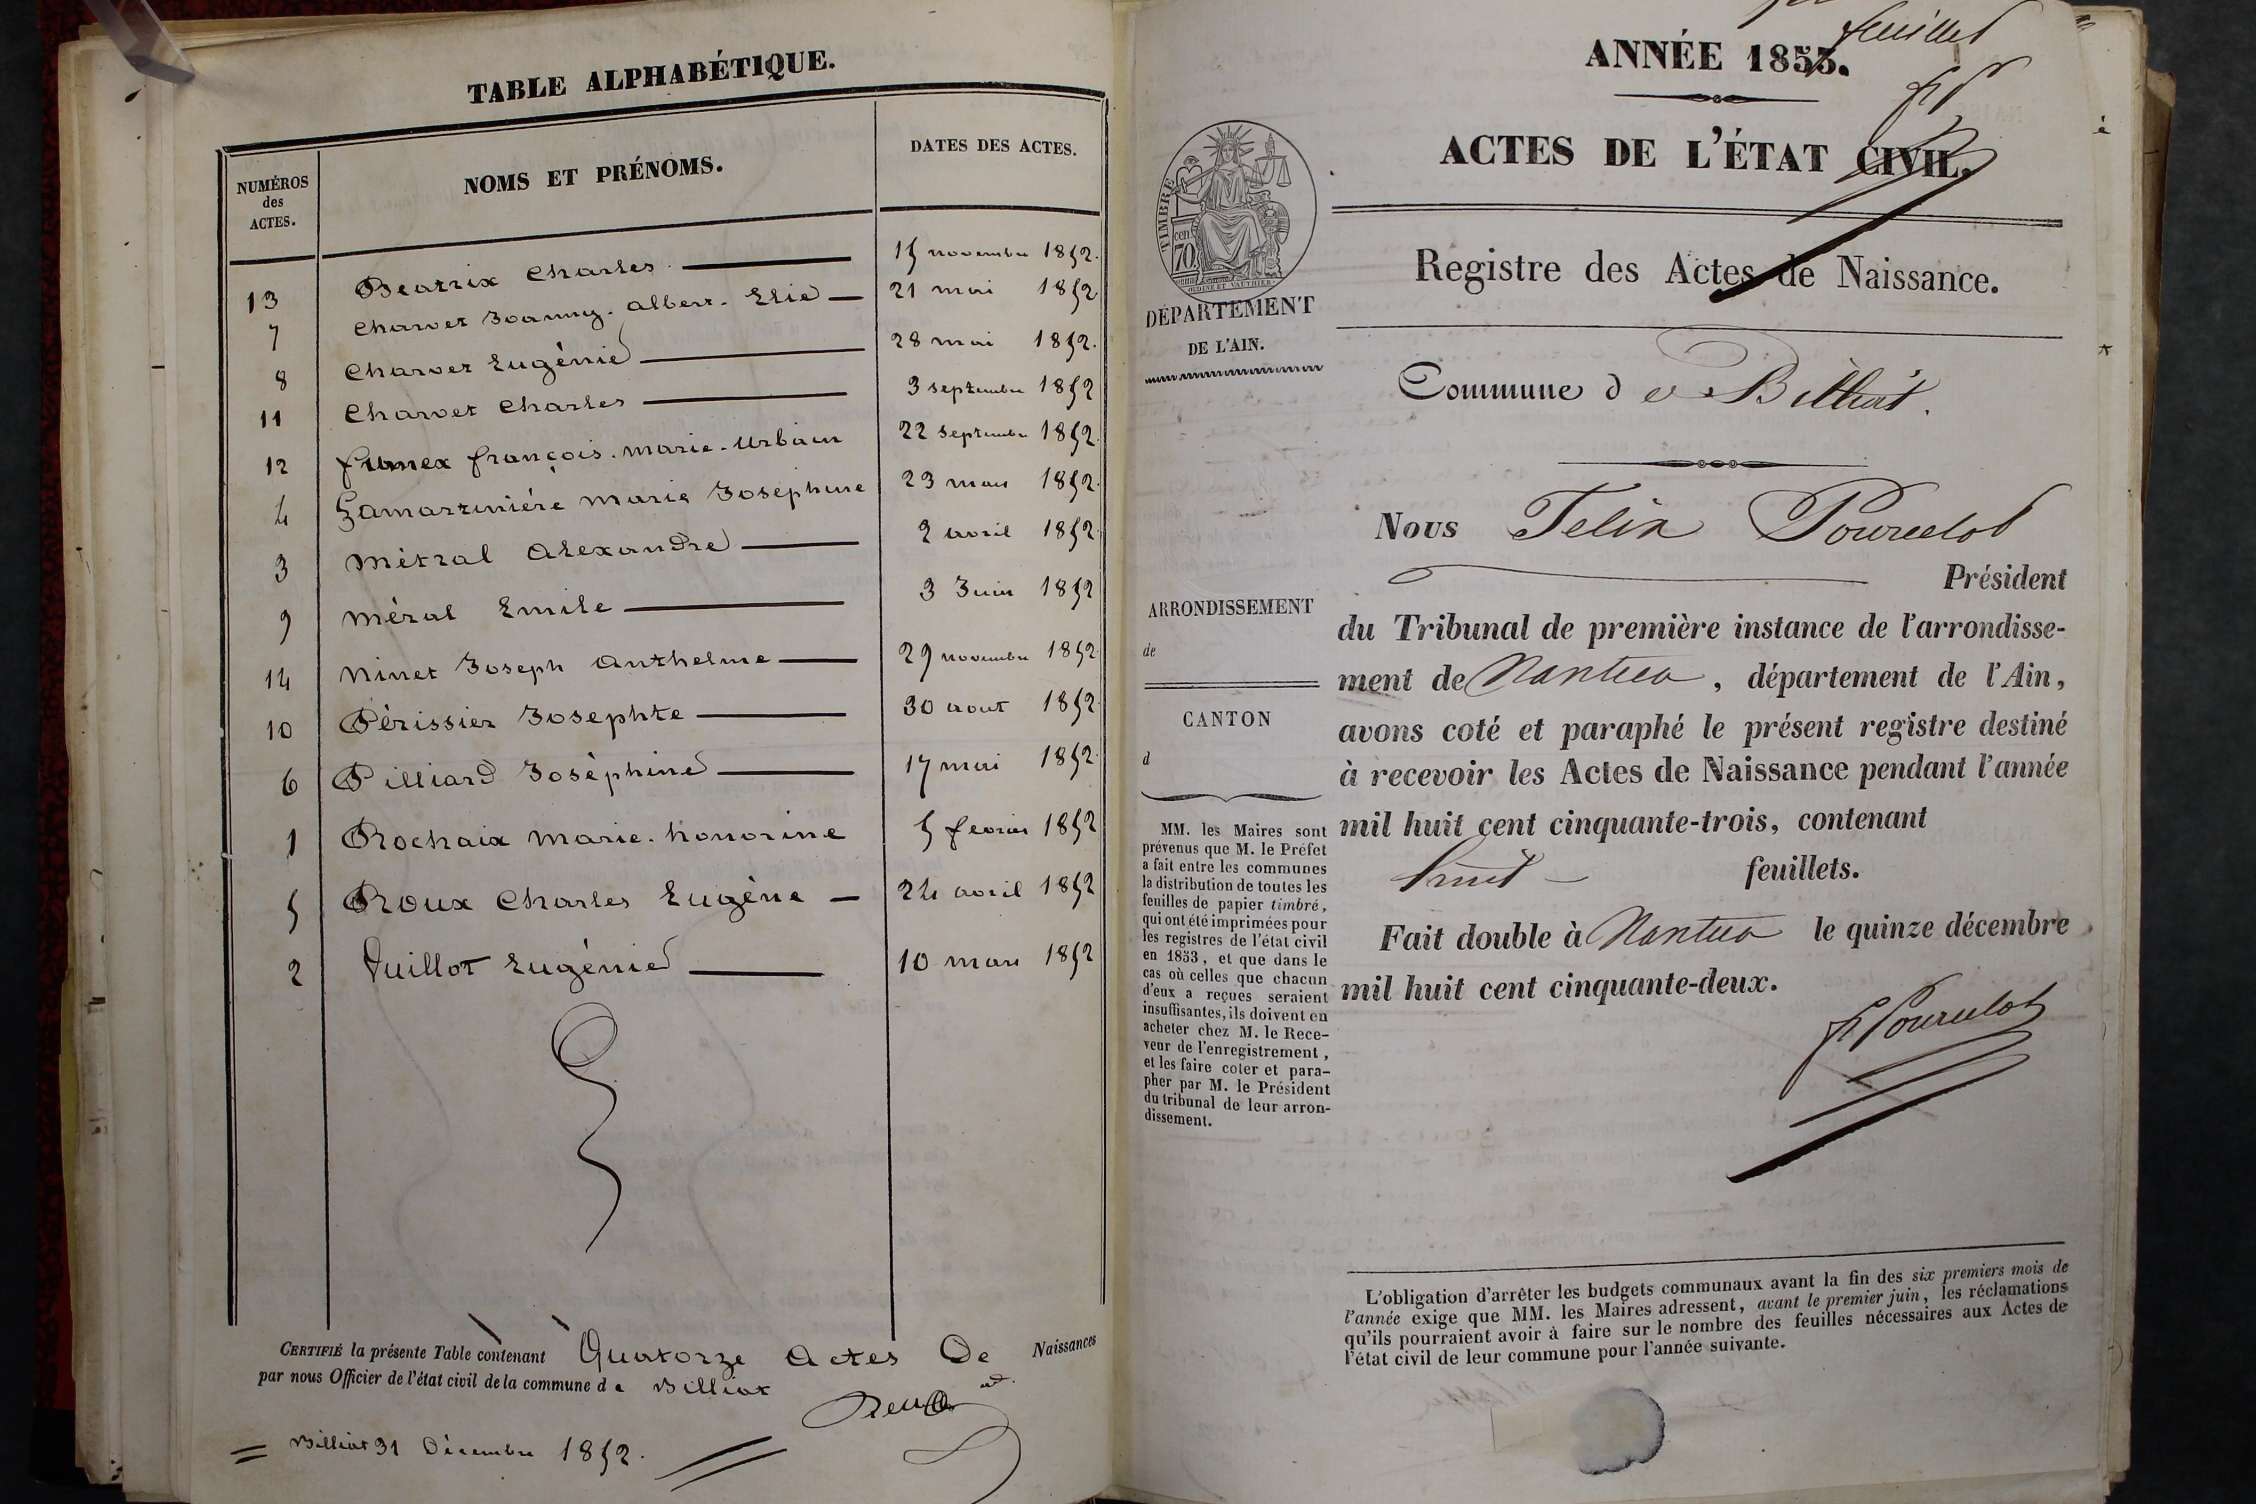 TABLE ALPHABÉTIQUE.
NUMÉROS des ACTES. NOMS ET PRÉNOMS. DATES DES ACTES.
13 Beatrix Charles 15 novembre 1852.
7 Charvet Joanny. Albert. Elie 21 mai 1852
8 Charvet Eugénie 28 mai 1852.
11 Charvet Charles 3 septembre 1852
12 fumex françois. marie. Urbain 22 septembre 1852.
4 Lamartinière Marie Josephine 23 mars 1852.
3 Métral Alexandre 2 avril 1852.
9 Méral Emile 3 Juin 1852
14 Ninet Joseph Anthelme 29 novembre 1852
10 Périssier Josephte 30 aout 1852.
6 Pilliard Joséphine 17 mai 1852.
1 Rochaix Marie. honorine 5 fevrier 1852
5 Roux Charles Eugène 24 avril 1852
2 Vuillot Eugénie 10 mars 1852
CERTIFIÉ la présente Table contenant Quatorze Actes De Naissances
par nous Officier de l'état civil de la commune d e Billiat
Billiat 31 Décembre 1852.
feuillet
ANNÉE 1853.
ACTES DE L'ÉTAT CIVIL.
TIMBRE
70 cen
Registre des Actes de Naissance.
DÉPARTEMENT
DE L'AIN.
Commune d e Billiat.
Nous Felix Pourcelot
Président
ARRONDISSEMENT
de
CANTON
d
du Tribunal de première instance de l'arrondisse-
ment de Nantua, département de l'Ain,
avons coté et paraphé le présent registre destiné
à recevoir les Actes de Naissance pendant l'année
mil huit cent cinquante-trois, contenant
huit feuillets.
Fait double à Nantua le quinze décembre
mil huit cent cinquante-deux.
F Pourcelot
MM. les Maires sont
prévenus que M. le Préfet
a fait entre les communes
la distribution de toutes les
feuilles de papier timbré,
qui ont été imprimées pour
les registres de l'état civil
en 1853, et que dans le
cas où celles que chacun
d'eux a reçues seraient
insuffisantes, ils doivent en
acheter chez M. le Rece-
veur de l'enregistrement,
et les faire coter et para-
pher par M. le Président
du tribunal de leur arron-
dissement.
L'obligation d'arrêter les budgets communaux avant la fin des six premiers mois de
l'année exige que MM. les Maires adressent, avant le premier juin, les réclamations
qu'ils pourraient avoir à faire sur le nombre des feuilles nécessaires aux Actes de
l'état civil de leur commune pour l'année suivante.